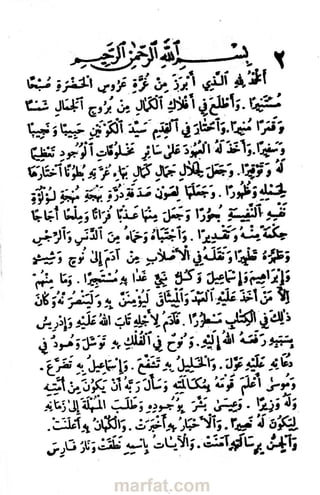 ٢
بِسْمِ اللهِ الرَّحْمٰنِ الرَّحِيْمِ
اَلْحَمْدُ لِلّٰهِ الَّذِي أَبْرَزَ مِنْ غُرَّةِ عَرُوسِ الْحَضْرَةِ صُبْحًا
مُسْتَنِيرًا. وَأَطْلَعَ فِي أَفْلَاكِ الْكَمَالِ مِنْ بُرُوجِ الْجَمَالِ شَمْسًا
وَقَمَرًا مُنِيرًا. وَاخْتَارَ فِي الْقِدَمِ سَيِّدَ الْكَوْنَيْنِ حَبِيبًا وَنَجِيبًا
وَسَفِيرًا. وَأَخَذَ لَهُ الْعُهُودَ عَلَى سَائِرِ مَخْلُوقَاتِ الْوُجُودِ تَعْظِيمًا
لَهُ وَتَوْقِيرًا. وَجَعَلَ لِجَلَالِ جَمَالِ كَمَالِ بَهَاءِ عِزَّتِهِ بُطُونًا اخْتَارَهَا
لِحَمْلِهِ وَظُهُورًا. وَجَعَلَهَا لِصَوْنِ صَدَفَةِ دُرَّةِ بَهْجَةِ مُهْجَةِ لُؤْلُؤَةِ
نَفْسِهِ النَّفِيسَةِ بُحُورًا وَجَعَلَ مِنْهَا عَذْبًا فُرَاتًا وَمِلْحًا أُجَاجًا
حِكْمَةً مِنْهُ وَتَقْدِيرًا. وَاجْتَبَاهُ وَحَمَاهُ مِنَ الدَّنَسِ وَالرِّجْسِ
وَطَهَّرَهُ تَطْهِيرًا وَنَقَلَهُ فِي الْأَصْلَابِ مِنْ آدَمَ إِلَى نُوحٍ وَشِيثَ
وَإِبْرَاهِيمَ وَإِسْمَاعِيلَ وَكُلُّ نَبِيٍّ غَدَا بِهِ مُسْتَجِيرًا. وَمَا مِنْهُمْ
إِلَّا مَنْ أَخَذَ عَلَيْهِ الْعَهْدَ وَالْمِيثَاقَ لَيُؤْمِنَنَّ بِهِ وَلَيَنْصُرَنَّهُ وَكَانَ
ذٰلِكَ فِي الْكِتَابِ مَسْطُورًا. فَآدَمُ لِأَجْلِهِ تَابَ اللهُ عَلَيْهِ وَإِدْرِيسُ
بِسَبَبِهِ رَفَعَهُ اللهُ إِلَيْهِ. وَنُوحٌ فِي الْفُلْكِ بِهِ تَوَسَّلَ وَهُودٌ فِي
دُعَائِهِ عَلَيْهِ عَوَّلَ. وَالْخَلِيلُ بِهِ تَشَفَّعَ. وَإِسْمَاعِيلُ بِهِ تَضَرَّعَ.
وَمُوسَى أَعْلَمَ قَوْمَهُ بِمُكَالَمَتِهِ وَسَأَلَ رَبَّهُ أَنْ يَكُونَ مِنْ أُمَّتِهِ
وَلَهُ وَزِيرًا. وَعِيسَى بَشَّرَ بِوُجُودِهِ وَطَلَبَ الْمُهْلَةَ إِلَى زَمَانِهِ
لِيَكُونَ لَهُ نَصِيرًا. وَالْأَحْبَارُ بِهِ أَخْبَرَتْ. وَالْكُهَّانُ بِهِ أَعْلَنَتْ.
وَالْجِنُّ بِرِسَالَتِهِ آمَنَتْ. وَالْآيَاتُ بِاسْمِهِ نَطَقَتْ وَنَارُ فَارِسَ
marfat.com